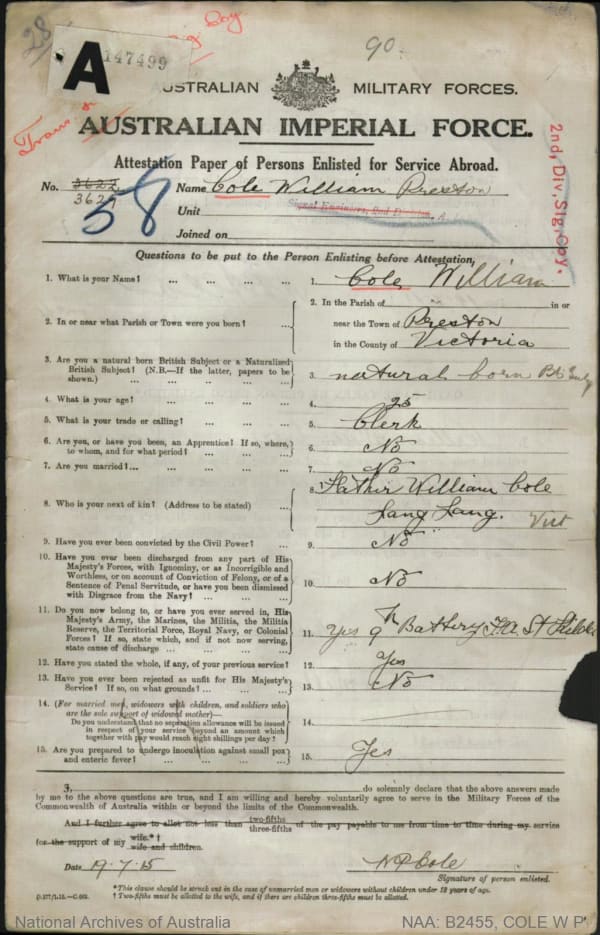 28
147499
A
90
AUSTRALIAN MILITARY FORCES.
AUSTRALIAN IMPERIAL FORCE.
Attestation Paper of Persons Enlisted for Service Abroad.
No. 3622 Name Cole William Preston
3627
58
Unit Signal Engineers, 2nd Division, A.
2nd, Div, Sig Coy.
Joined on
Questions to be put to the Person Enlisting before Attestation.
1. What is your Name? ... ... ... ... 1. Cole, William
2. In or near what Parish or Town were you born? ... 2. In the Parish of in or
near the Town of Preston
in the County of Victoria
3. Are you a natural born British Subject or a Naturalized
British Subject? (N.B.—If the latter, papers to be
shown.) ... ... ... ... 3. natural born
4. What is your age? ... ... ... ... 4. 25
5. What is your trade or calling? ... ... ... 5. Clerk
6. Are you, or have you been, an Apprentice? If so, where,
to whom, and for what period? ... ... ... 6. No
7. Are you married?... ... ... ... ... 7. No
8. Who is your next of kin? (Address to be stated) ... 8. Father William Cole
Lang Lang. Vict
9. Have you ever been convicted by the Civil Power? ... 9. No
10. Have you ever been discharged from any part of His
Majesty's Forces, with Ignominy, or as Incorrigible and
Worthless, or on account of Conviction of Felony, or of a
Sentence of Penal Servitude, or have you been dismissed
with Disgrace from the Navy? ... ... ... 10. No
11. Do you now belong to, or have you ever served in, His
Majesty's Army, the Marines, the Militia, the Militia
Reserve, the Territorial Force, Royal Navy, or Colonial
Forces? If so, state which, and if not now serving,
state cause of discharge ... ... ... 11. Yes 9th Battery F.A. St Kilda
12. Have you stated the whole, if any, of your previous service? 12. Yes
13. Have you ever been rejected as unfit for His Majesty's
Service? If so, on what grounds? ... ... ... 13. No
14. (For married men, widowers with children, and soldiers who
are the sole support of widowed mother)—
Do you understand that no separation allowance will be issued
in respect of your service beyond an amount which
together with pay would reach eight shillings per day? ... 14.
15. Are you prepared to undergo inoculation against small pox
and enteric fever? ... ... ... ... 15. Yes
I, do solemnly declare that the above answers made
by me to the above questions are true, and I am willing and hereby voluntarily agree to serve in the Military Forces of the
Commonwealth of Australia within or beyond the limits of the Commonwealth.
And I further agree to allot not less than two-fifths three-fifths of the pay payable to me from time to time during my service
for the support of my wife.*† wife and children.
Date 19.7.15 W P Cole
Signature of person enlisted.
*This clause should be struck out in the case of unmarried men or widowers without children under 18 years of age.
† Two-fifths must be allotted to the wife, and if there are children three-fifths must be allotted.
National Archives of Australia NAA: B2455, COLE W P